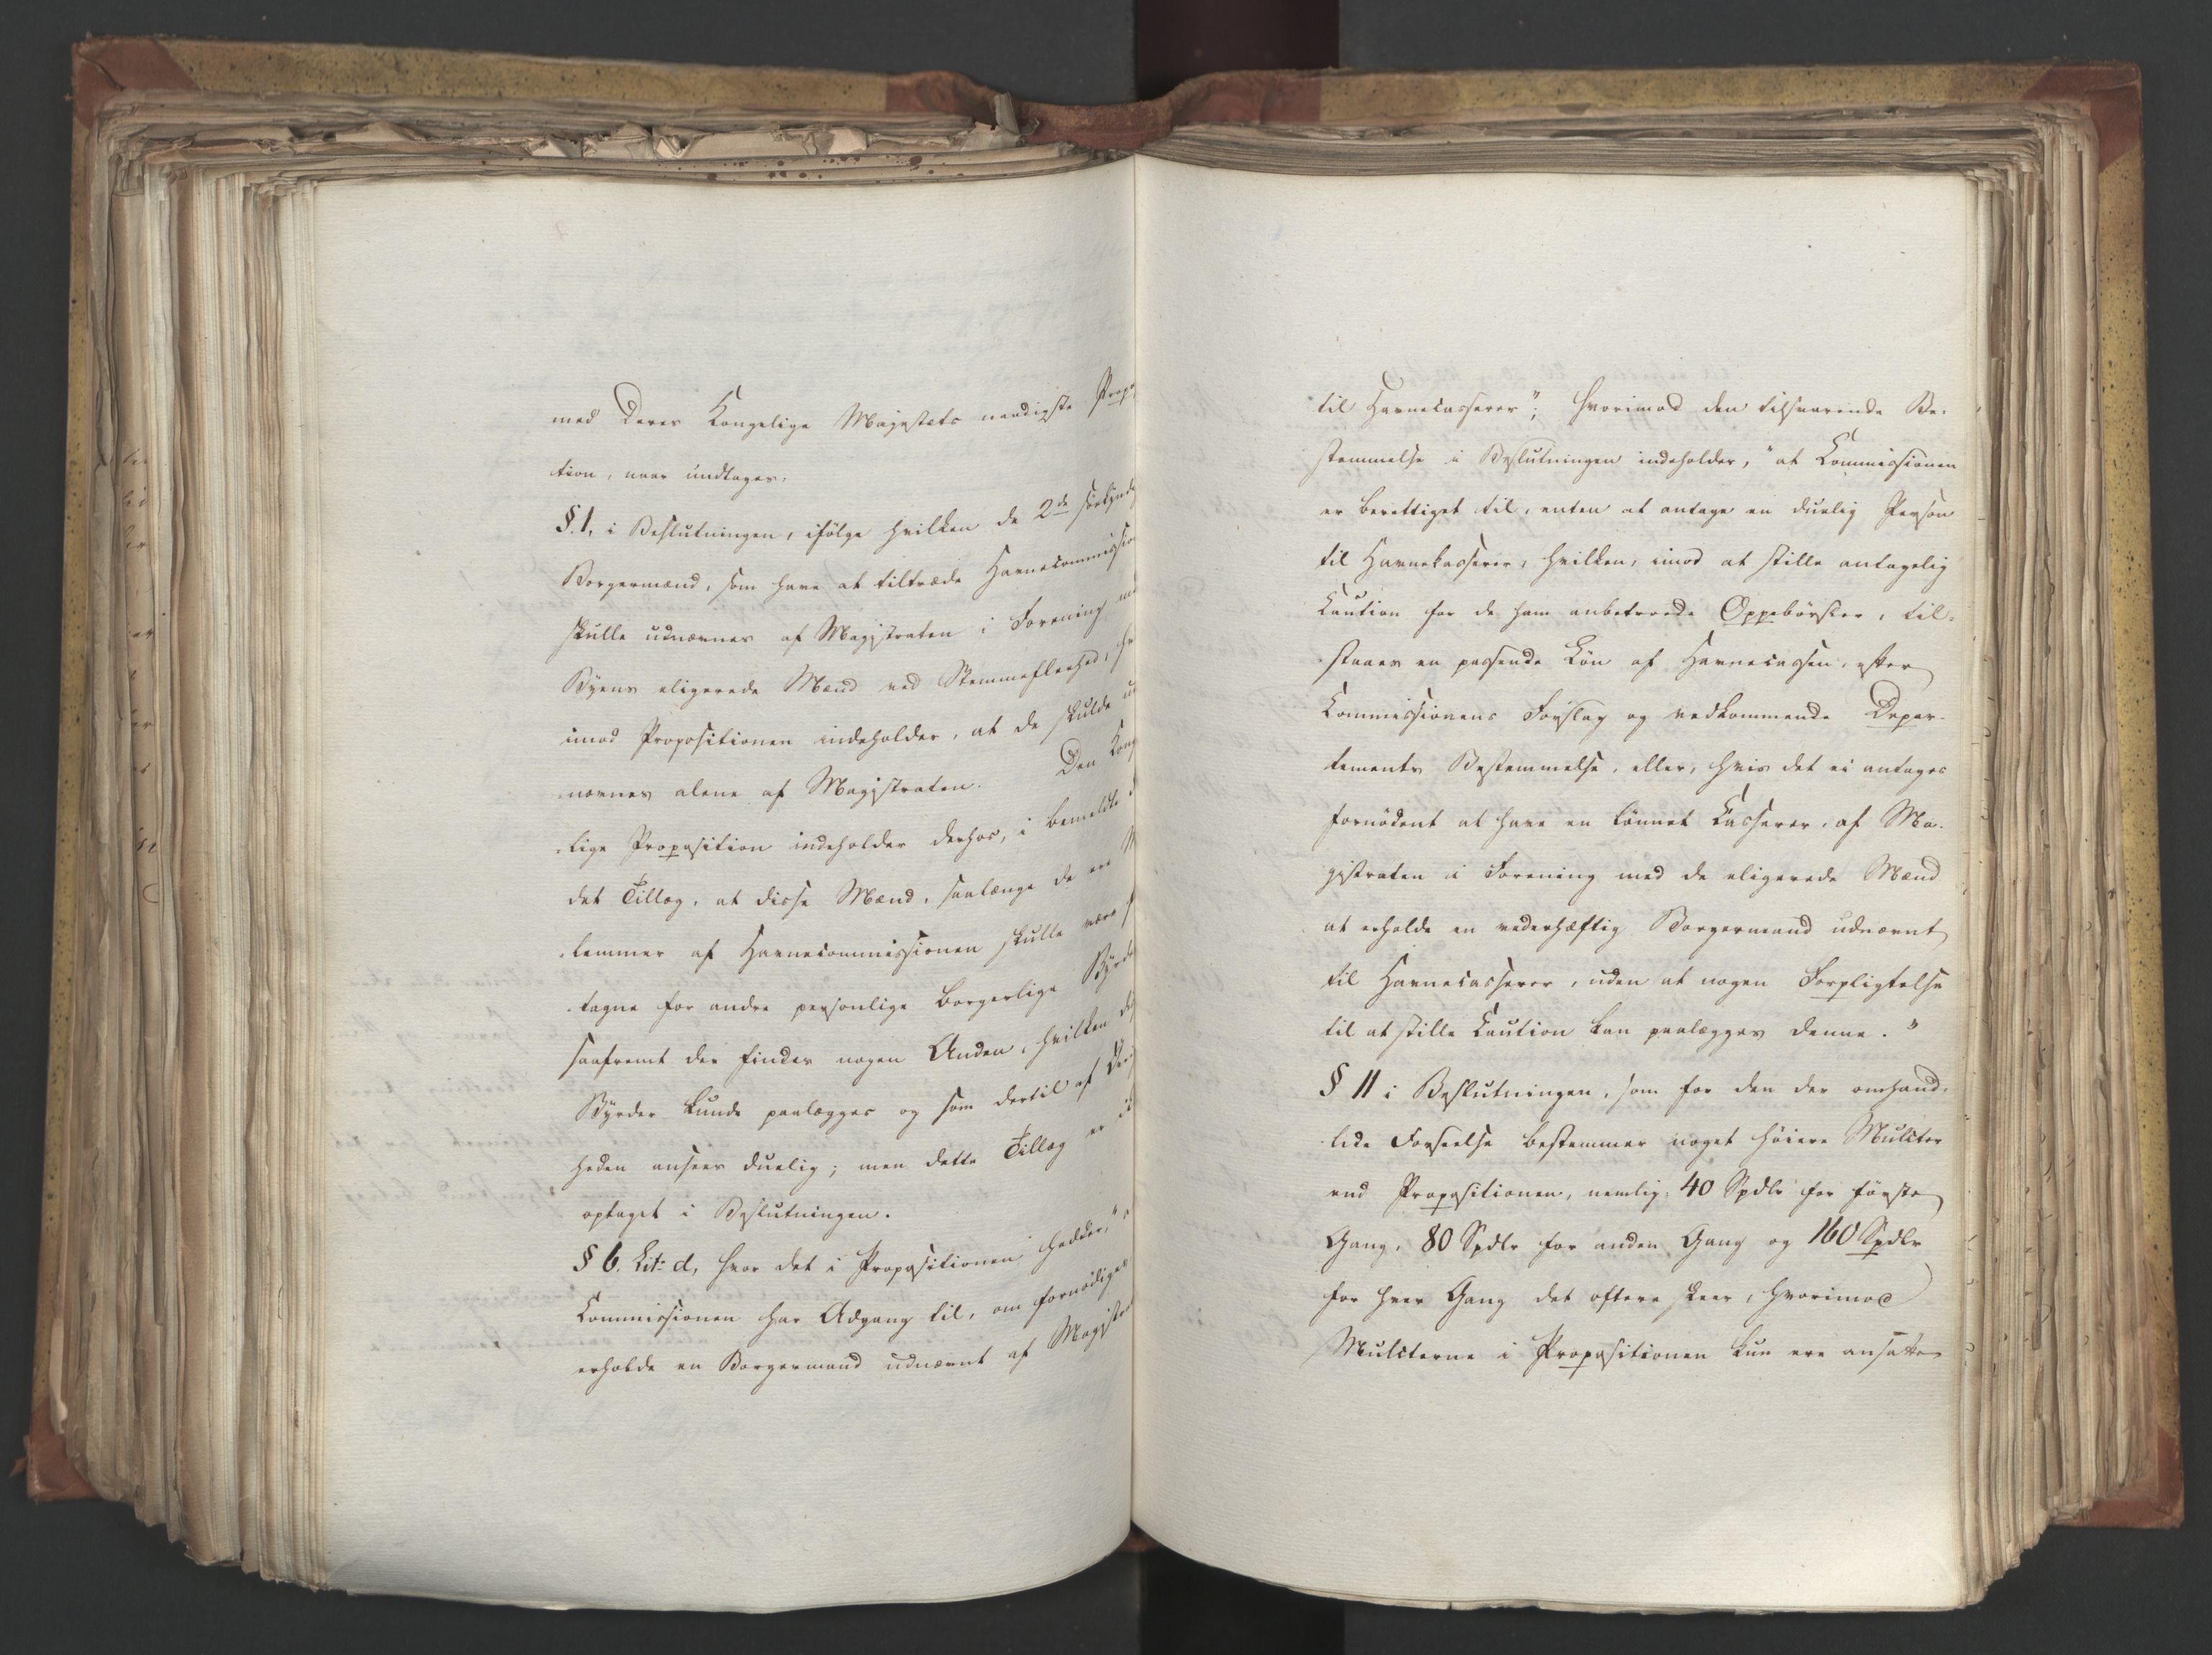 med Deres Kongelige Majestæts naadigste Propo
tion, naar undtages:
§.1, i Beslutningen, ifølge hvilken de 2de søekyndig
Borgermænd, som have at tiltræde Havnecommission
skulle udnævnes af Magistraten i Forening me
Byens eligerede Mænd ved Stemmefleerhed, hv
imod Propositionen indeholder, at de skulde ud
nævnes alene af Magistraten. Den Kong
lige Proposition indeholder derhos, i bemeldte
det Tillæg, at disse Mænd, saalænge de ere M
lemmer af Havnecommissionen skulle være f
tagne for andre personlige borgerlige Byrde
saafremt der findes nogen Anden, hvilken di
Byrder kunde paalægges og som dertil af Øv
heden ansees duelig; men dette Tillæg er ik
optaget i Beslutningen.
§ 6. Lit: d, hvor det i Propositionen hedder, "
Commissionen har Adgang til, om fornødiges
erholde en Borgermand udnævnt af Magistra
til Havnecasserer"; hvorimod den tilsvarende Be-
stemmelse i Beslutningen indeholder, "at Commissionen
er berettiget til, enten at antage en duelig Person
til Havnekasserer, hvilken, imod at stille antagelig
Caution for de ham anbetroede Oppebørsler, til-
staaes en passende Løn af Havnecassen, efter
Commissionens Forslag og vedkommende Depar-
tements Bestemmelse, eller, hvis det ei antages
fornødent at have en lønnet Casserer, af Ma-
gistraten i Forening med de eligerede Mænd
at erholde en vederhæftig Borgermand udnævnt
til Havnecasserer, uden at nogen Forpligtelse
til at stille Caution kan paalægges denne."
§ 11 i Beslutningen, som for den der omhand-
lede Forseelse bestemmer noget høiere Mulcter
end Propositionen, nemlig: 40 Spdlr for første
Gang, 80 Spdlr for anden Gang og 160 Spdlr
for hver Gang det oftere skeer, hvorimod
Mulcterne i Propositionen kun ere ansatte